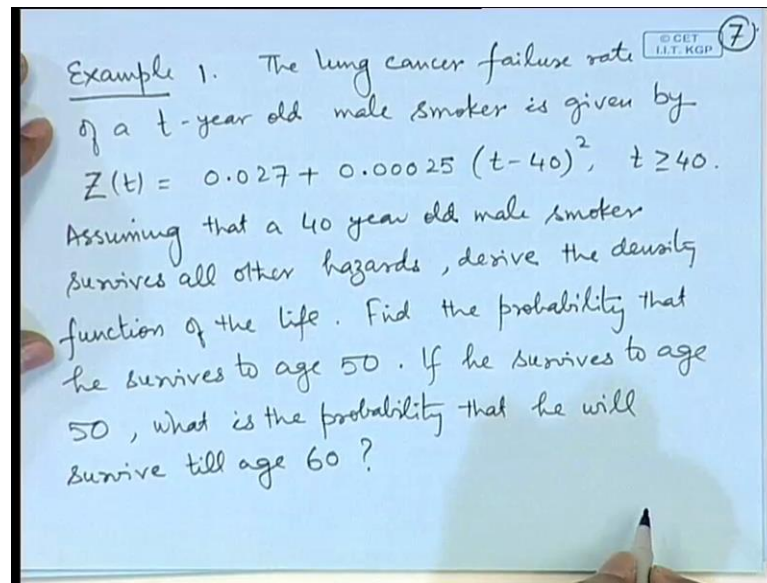 © CET
I.I.T. KGP
7
Example 1. The lung cancer failure rate
of a t-year old male smoker is given by
Z(t) = 0.027 + 0.00025 (t-40)², t ≥ 40.
Assuming that a 40 year old male smoker
survives all other hazards, derive the density
function of the life. Find the probability that
he survives to age 50. If he survives to age
50, what is the probability that he will
survive till age 60?